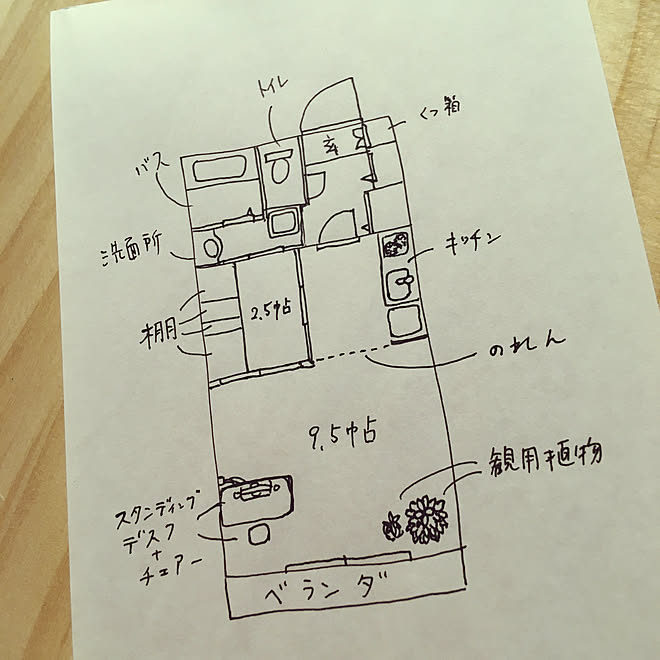 トイレ
くつ箱
玄
バス
洗面所
キッチン
2.5帖
棚
のれん
9.5帖
観用植物
スタンディング
デスク
+
チェアー
ベランダ